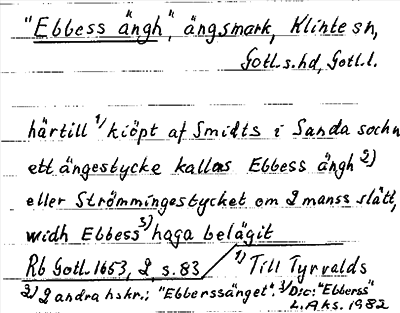 "Ebbess ängh", ängsmark, Klinte sn,
Gotl. s. hd, Gotl. l.
härtill 1) kiöpt af Smidts i Sanda sochn
ett ängestycke kallas Ebbess ängh 2)
eller Strömmingestycket om 2 manss slått,
widh Ebbess 3) haga belägit
Rb Gotl. 1653, 2, s. 83 / 1) Till Tyrvalds
2) 2 andra hskr.: "Ebberssänget". 3) D:o: "Ebberss"
L. A ks. 1982